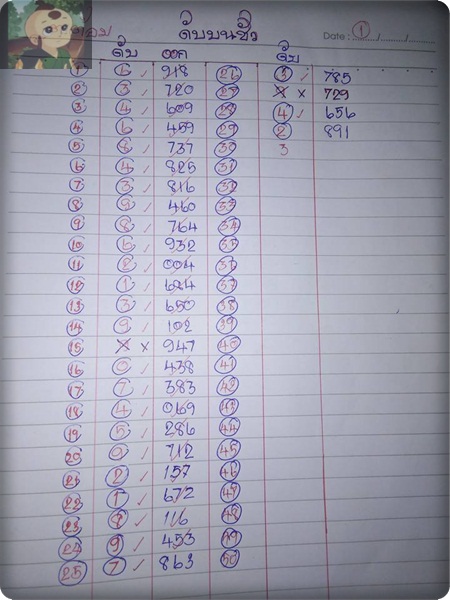 ดับบนชัว Date : 1
ดับ ออก ดับ
1 918 26 3 785
2 3 720 27 x 729
3 4 609 28 4 656
4 6 459 29 2 891
5 8 737 30 3
6 4 825 31
7 3 816 32
8 9 460 33
9 8 764 34
10 932 35
11 2 004 36
12 1 684 37
13 3 650 38
14 9 102 39
15 x 947 40
16 0 438 41
17 7 383 42
18 4 069 43
19 5 286 44
20 0 712 45
21 2 157 46
22 1 672 47
23 116 48
24 9 453 49
25 7 863 50